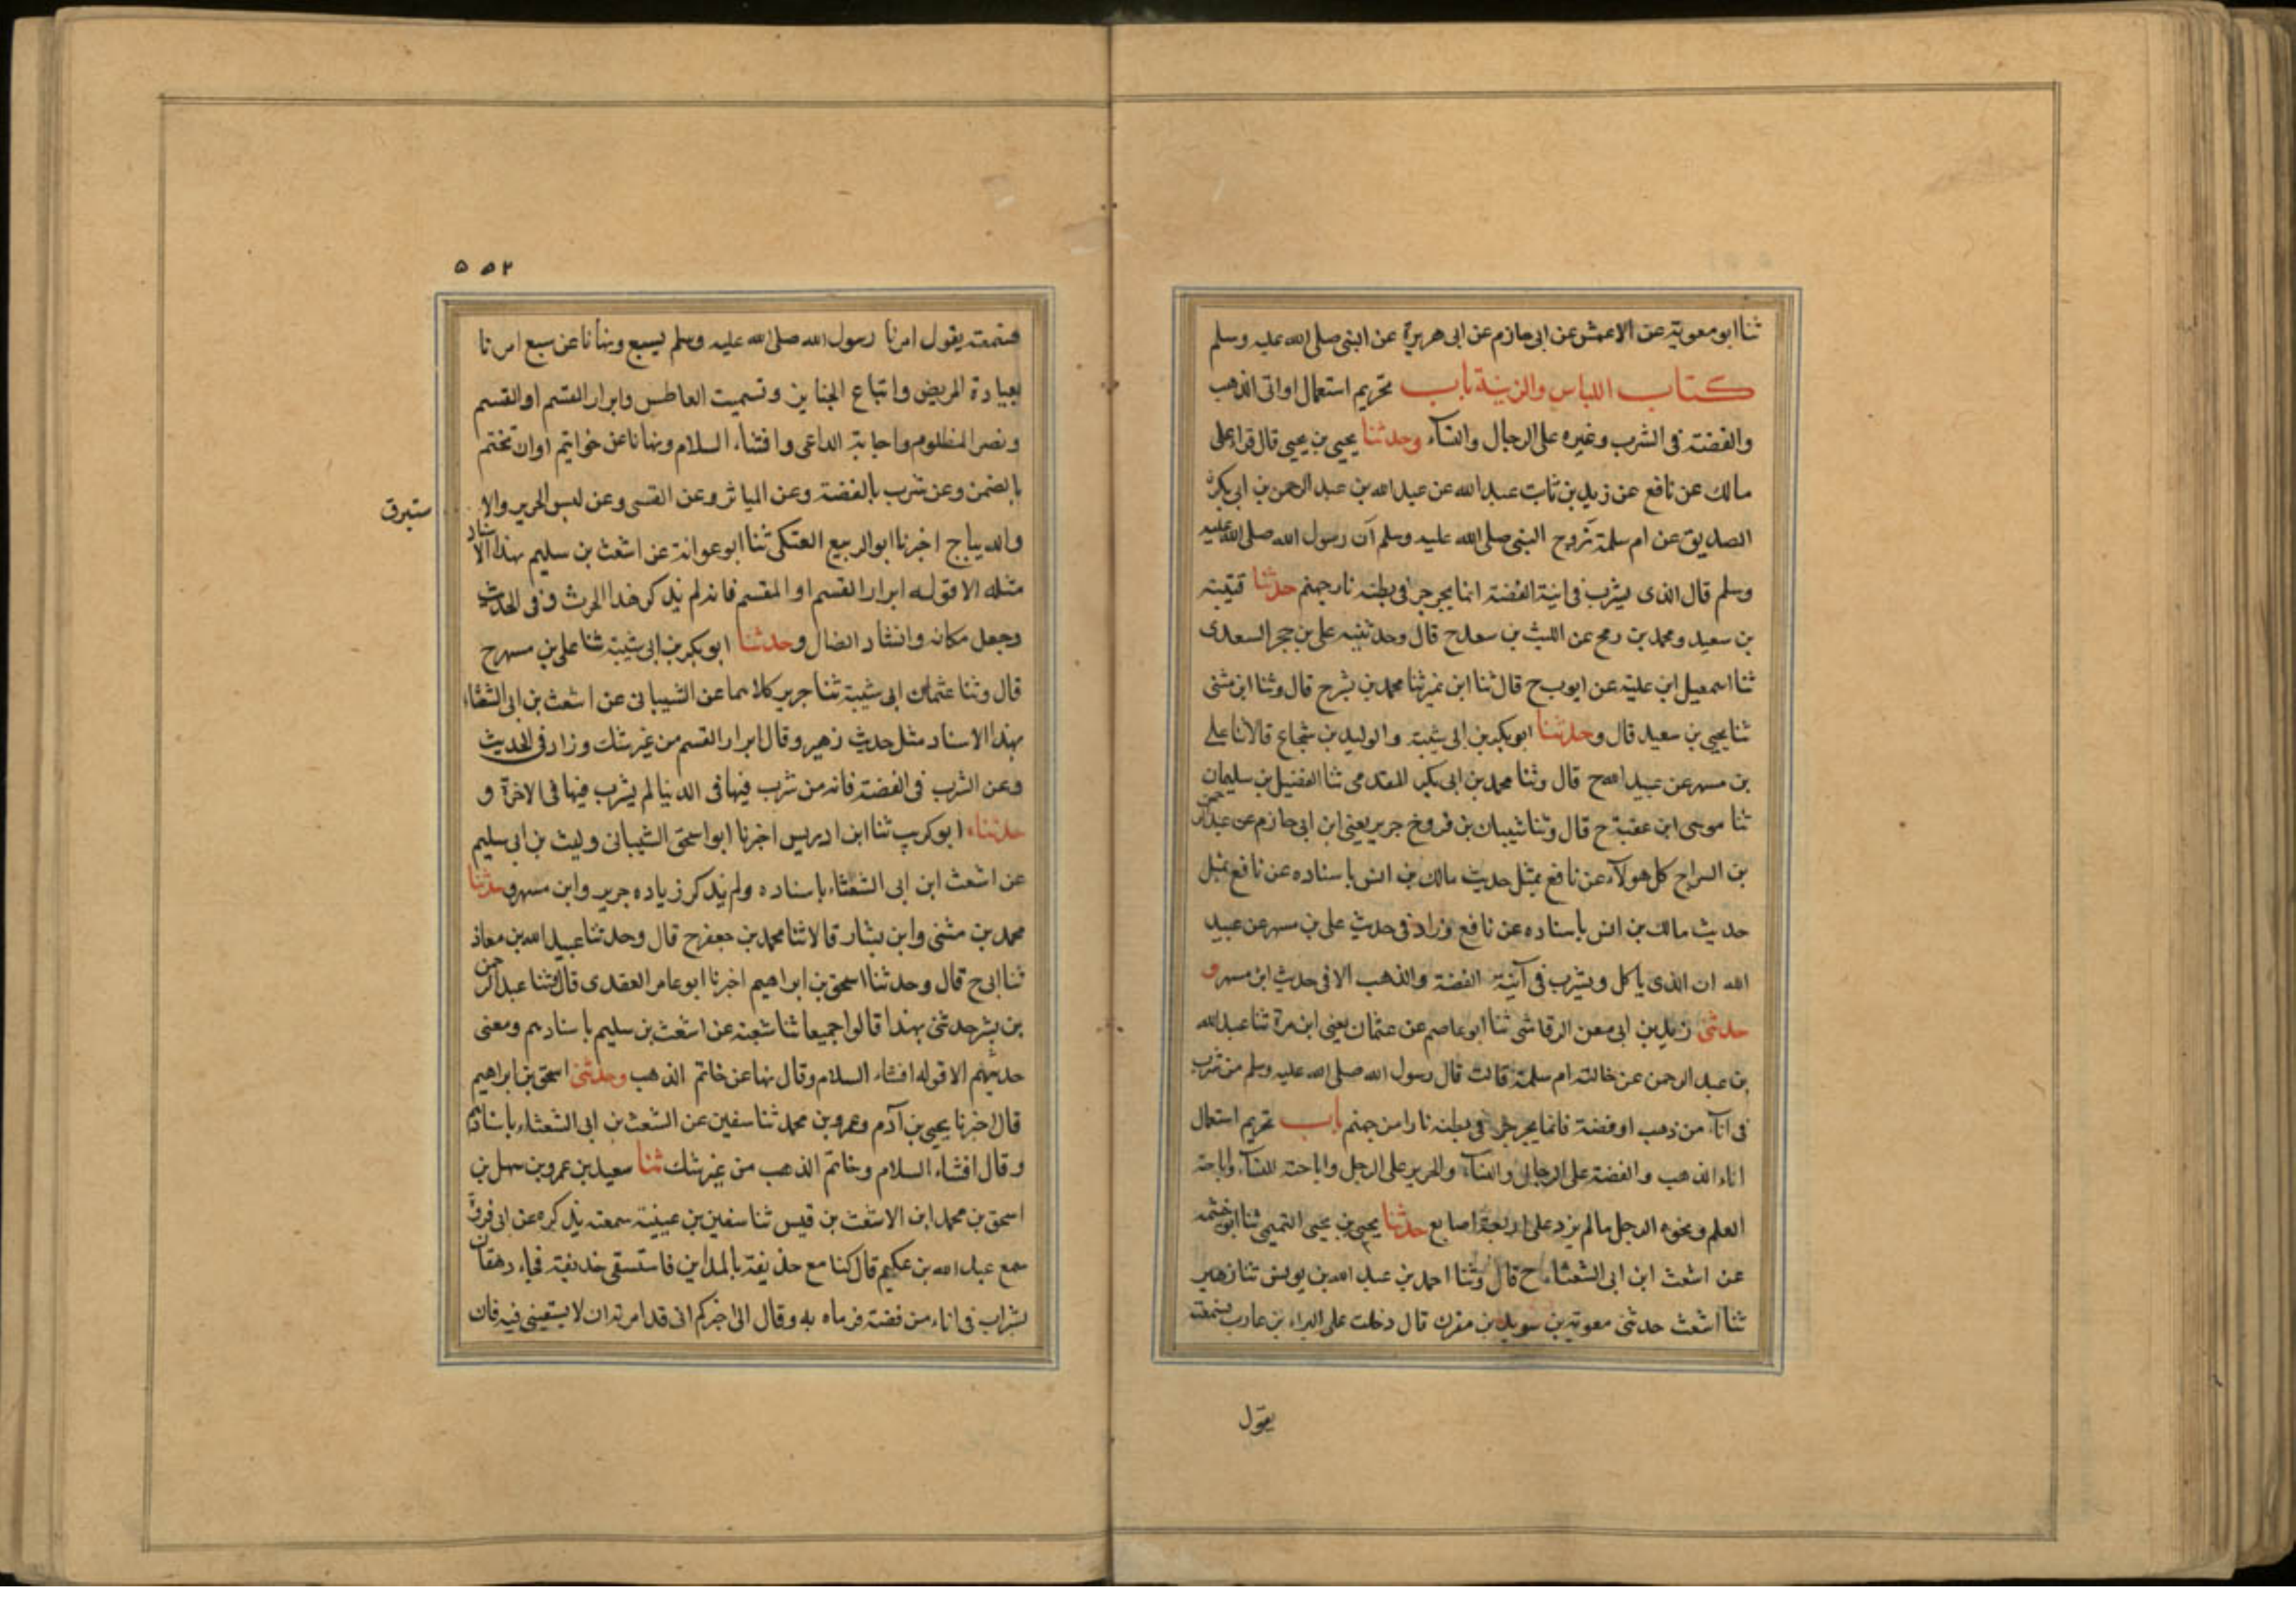 ثنا ابو معوية عن الاعمش عن ابى حازم عن ابى هريرة عن النبى صلى الله عليه وسلم
كتاب اللباس والزينة باب تحريم استعمال اوانى الذهب
والفضة فى الشرب وغيره على الرجال والنساء وحدثنا يحيى بن يحيى قال قراءعلى
مالك عن نافع عن زيد بن ثابت عبد الله عن عبد الله بن عبد الرحمن بن ابى بكرة
الصديق عن ام سلمة تزوج النبى صلى الله عليه وسلم ان رسول الله صلى الله عليه
وسلم قال الذى يشرب فى انية الفضة انما يجرجر فى بطنه نار جهنم حدثنا قتيبة
بن سعيد ومحمد بن رمح عن الليث بن سعد ح قال وحدثنيه على بن حجر السعدى
ثنا اسمعيل ابن علية عن ايوب ح قال ثنا ابن نمير ثنا محمد بن بشر ح قال وثنا ابن مثنى
ثنا يحيى بن سعيد قال وحدثنا ابو بكر بن ابى شيبة والوليد بن شجاع قالا ثنا على
بن مسهر عن عبيد الله ح قال وثنا محمد بن ابى بكر المقدمى ثنا الفضيل بن سليمان
ثنا موسى ابن عقبة ح قال وثنا شيبان بن فروخ جرير يعنى ابن ابى حازم عن عبد الرحمن
بن السراج كل هولاء عن نافع بمثل حديث مالك بن انس باسناده عن نافع بمثل
حديث مالك بن انس باسناده عن نافع وزاد فى حديث على بن مسهر عن عبيد
الله ان الذى ياكل ويشرب فى آنية الفضة والذهب الا فى حديث ابن مسهر و
حدثنى زيد بن ابى معن الرقاشى ثنا ابو عاصم عن عثمان يعنى ابن مرة ثنا عبد الله
بن عبد الرحمن عن خالته ام سلمة قالت قال رسول الله صلى الله عليه وسلم من شرب
فى اناء من ذهب او فضة فانما يجرجر فى بطنه نارا من جهنم باب تحريم استعمال
اناء الذهب والفضة على الرجال والنساء والحرير على الرجل واباحته للنساء واباحة
العلم ونحوه الرجل مالم يزد على اربعة اصابع حدثنا يحيى بن يحيى التميمى ثنا ابو خثمه
عن اشعث ابن ابى الشعثاء ح قال وثنا احمد بن عبد الله بن يونس ثنا زهير
ثنا اشعث حدثنى معوية بن سويد بن مقرن قال دخلت على البراء بن عازب فسمعته
يقول
۵۵۲
فسمعته يقول امرنا رسول الله صلى الله عليه وسلم بسبع ونهانا عن سبع امرنا
بعيادة المريض واتباع الجنايز وتسميت العاطس وابرار القسم او القسم
ونصر المظلوم واجابة الداعى وافشاء السلام ونهانا عن خواتيم او ان تختم
بالضمن وعن شرب بالفضة وعن المياثر وعن القسى وعن لبس الحرير والا
ستبرق
والديباج اخبرنا ابو الربيع العتكى ثنا ابو عوانة عن اشعث بن سليم بهذا الاسناد
مثله الا قوله ابرار القسم او المقسم فانه لم يذكر هذا الحرث فى الحديث
وجعل مكانه وانشاد الضال وحدثنا ابو بكر بن ابى شيبة ثنا على بن مسهر ح
قال وثنا عثمان ابى شيبة ثنا جرير كلاهما عن الشيبانى عن اشعث بن ابى الشعثاء
بهذا الاسناد مثل حديث زهير وقال ابرار القسم من غير شك وزاد فى الحديث
وعن الشرب فى الفضة فانه من شرب فيها فى الدنيا لم يشرب فيها فى الاخرة و
حدثناه ابو كريب ثنا ابن ادريس اخبرنا ابو اسحق الشيبانى وليث بن ابى سليم
عن اشعث ابن ابى الشعثاء باسناده ولم يذكر زياده جرير وابن مسهر وحدثنا
محمد بن مثنى وابن بشار قالا ثنا محمد بن جعفر ح قال وحدثنا عبيد الله بن معاذ
ثنا ابى ح قال وحدثنا اسحق بن ابراهيم اخبرنا ابو عامر العقدى قال وثنا عبد الرحمن
بن بشر حدثنى بهذا قالوا جميعا ثنا شعبة عن اشعث بن سليم باسنادهم ومعنى
حديثهم الا قوله افشاء السلام وقال نهاعن خاتم الذهب وحدثنى اسحق بن ابراهيم
قال اخبرنا يحيى بن آدم وعمرو بن محمد ثنا سفين عن الشعث بن ابى الشعثاء باسنادهم
وقال افشاء السلام وخاتم الذهب من غير شك ثنا سعيد بن عمرو بن سهل بن
اسحق بن محمد ابن الاشعث بن قيس ثنا سفين بن عيينة سمعته يذكره عن ابى فروة
سمع عبد الله بن عكيم قال كنا مع حذيفة بالمداين فاستسقى حذيفة فجاء دهقان
بشراب فى اناء من فضة فرماه به وقال انى اخبركم انى قد امرته ان لا يسقينى فيه فان